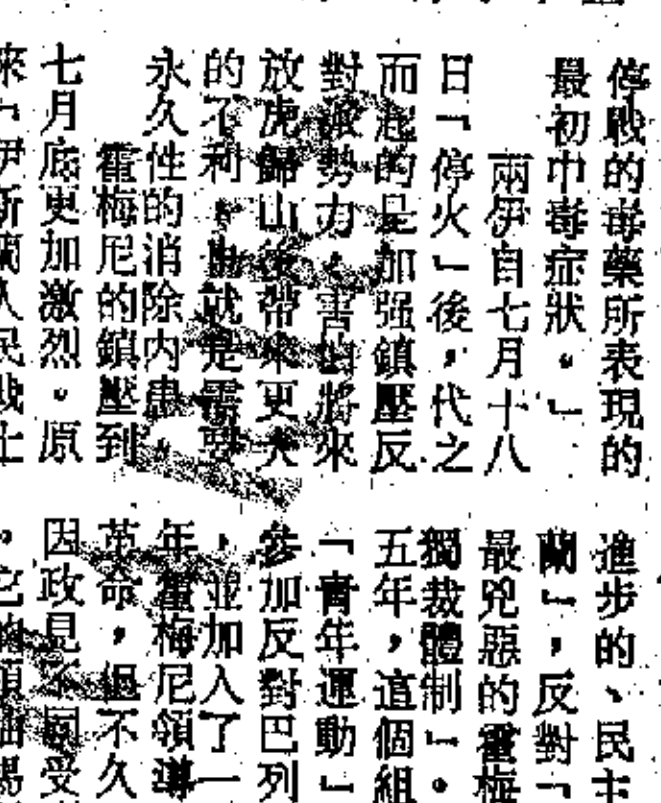 停戰的毒藥所表現的
最初中毒症狀。」
兩伊自七月十八
日「停火」後，代之
而起的是加强鎮壓反
對派勢力，害怕將來
放虎歸山後帶來更大
的不利，也就是需要
永久性的消除内患。
霍梅尼的鎮壓到
七月底更加激烈。原
來「伊斯蘭人民战士
進步的、民主
蘭」，反對「
最兇惡的霍梅
獨裁體制」。
五年，這個組
「青年運動」
參加反對巴列
，並加入了一
年霍梅尼領導
革命，過不久
因政見不同受